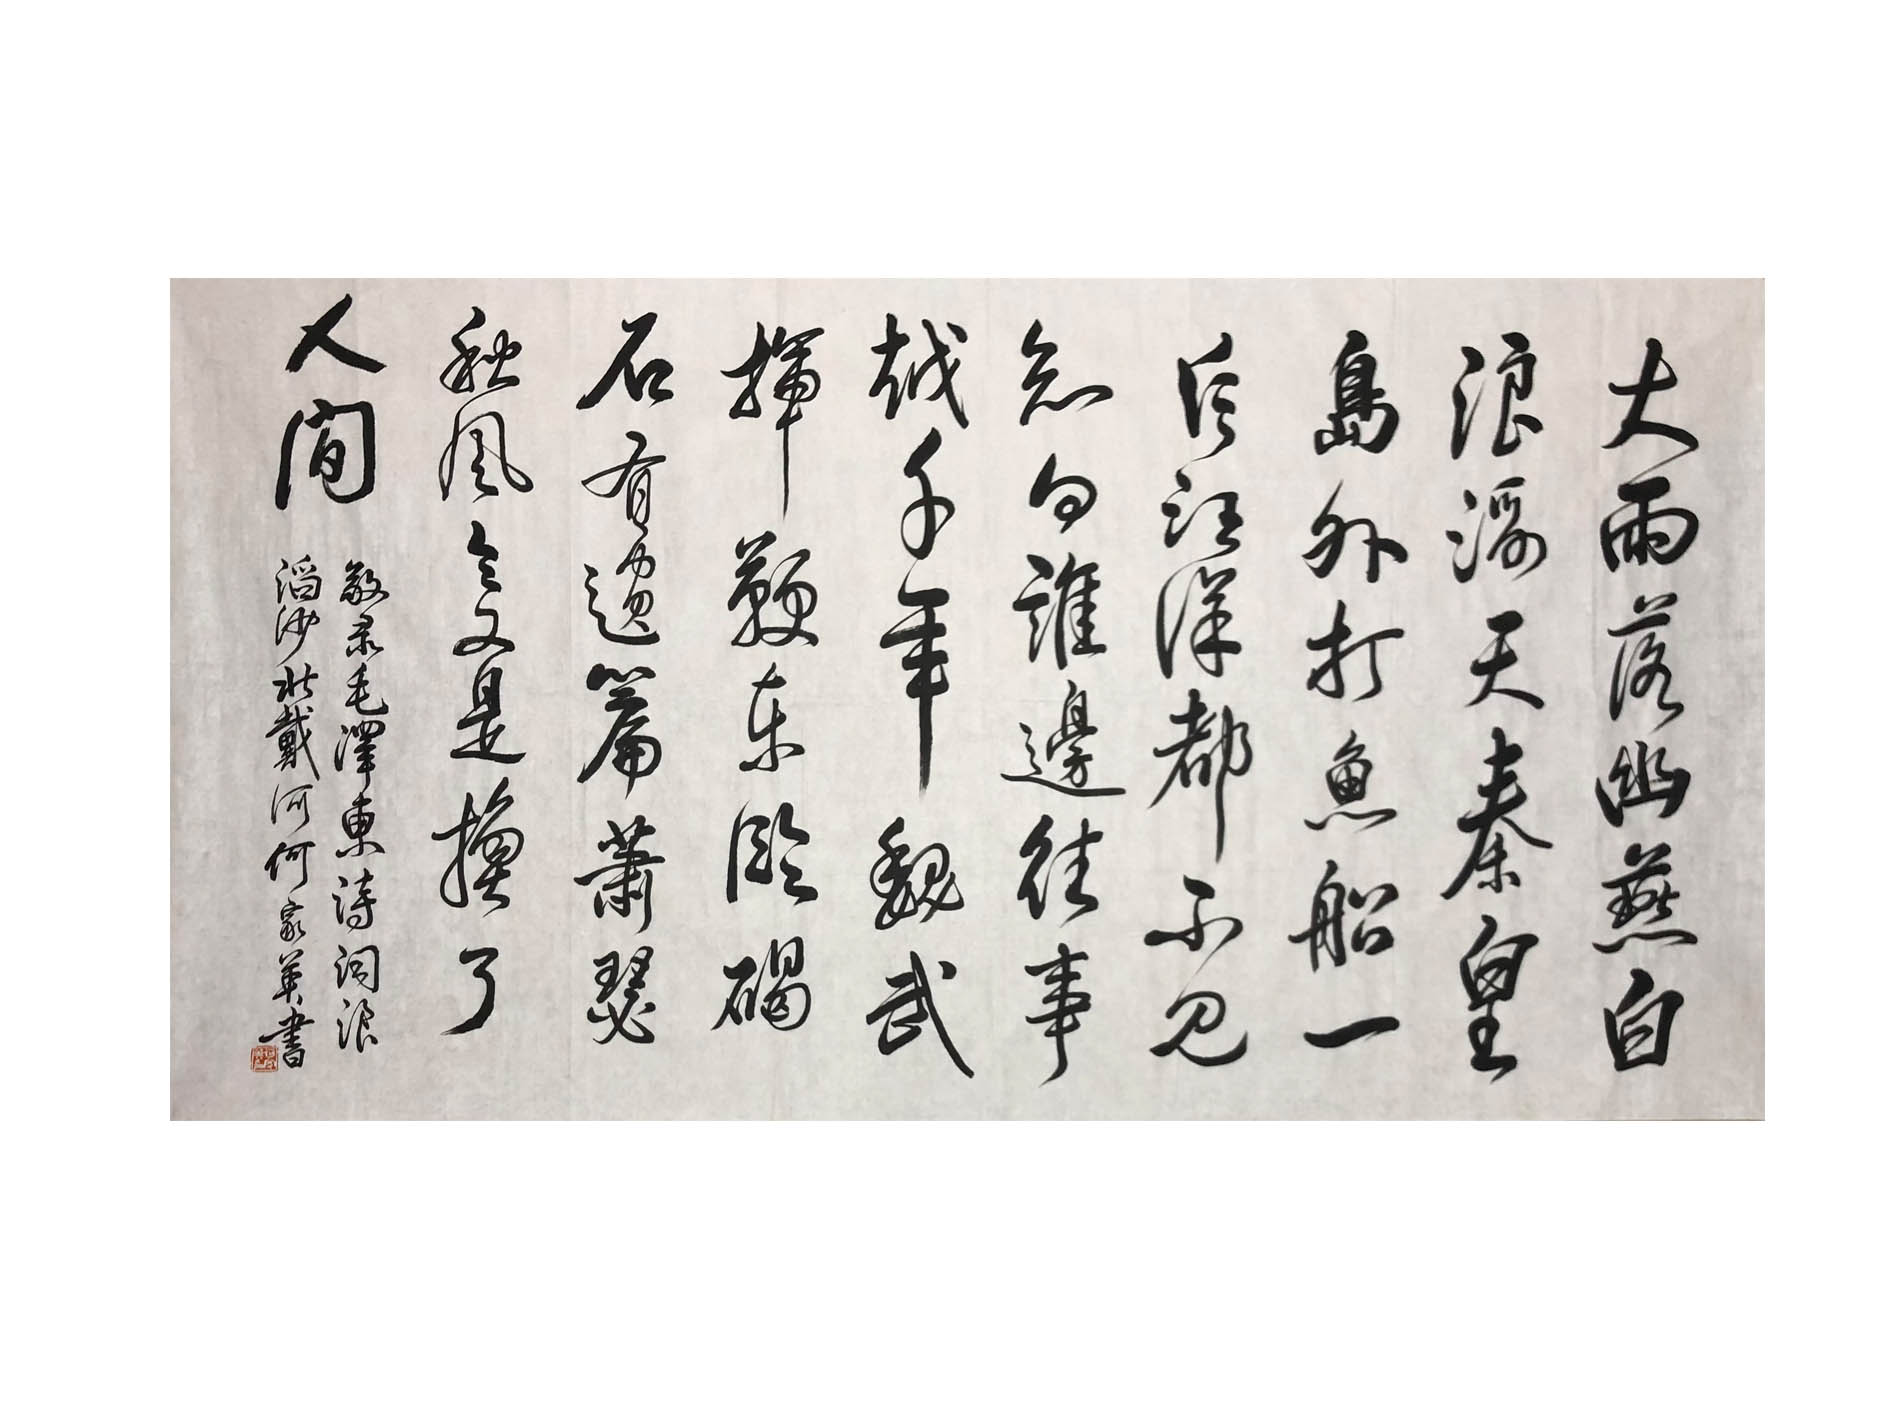 大雨落幽燕白
浪滔天秦皇
島外打魚船一
片汪洋都不見
知向誰邊往事
越千年魏武
揮鞭東臨碣
石有遺篇蕭瑟
秋風今又是換了
人間
敬录毛澤東詩词浪
滔沙北戴河何家英書